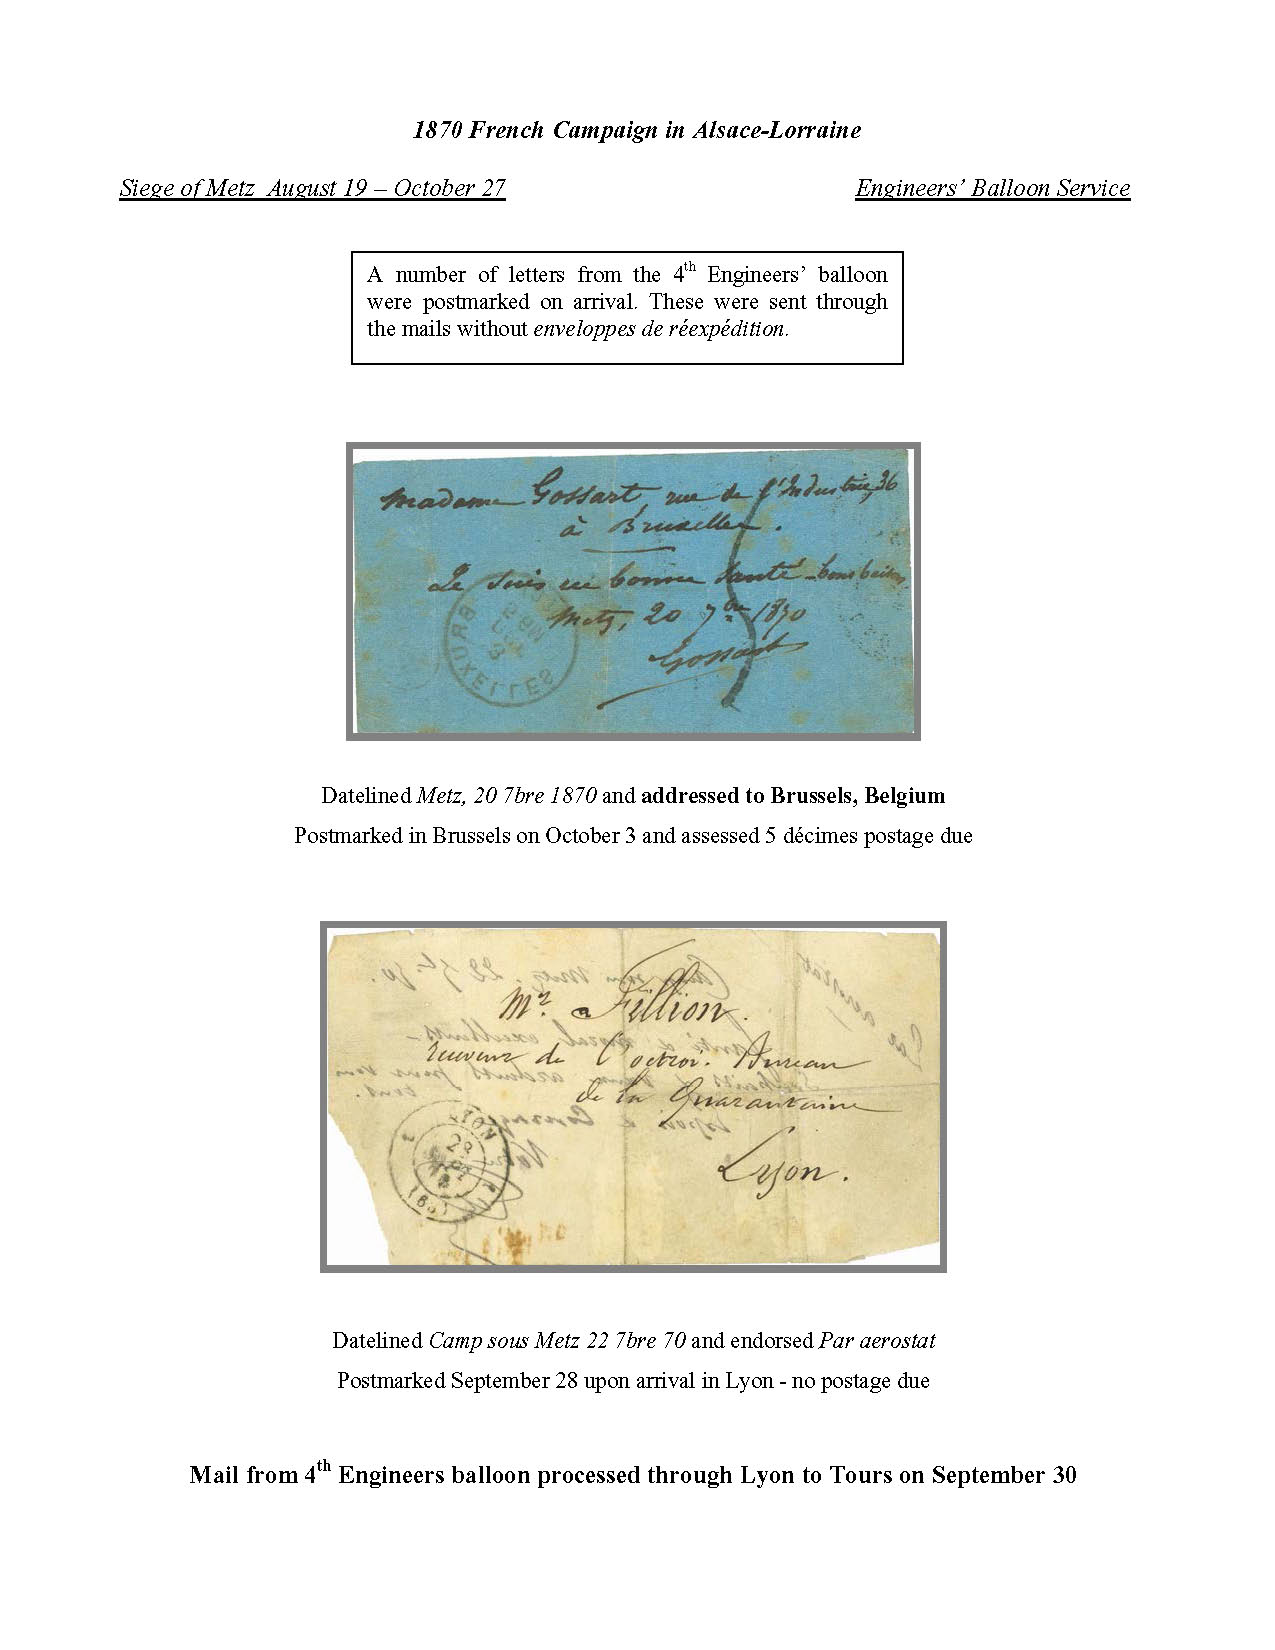 1870 French Campaign in Alsace-Lorraine
Siege of Metz August 19 – October 27
Engineers’ Balloon Service
A number of letters from the 4th Engineers’ balloon
were postmarked on arrival. These were sent through
the mails without enveloppes de réexpédition.
Madame Gossart rue de l'Industrie, 36
à Bruxelles.
Je suis en bonne santé - bons baisers
Metz, 20 7bre 1870
Gossart
BRUXELLES
Datelined Metz, 20 7bre 1870 and addressed to Brussels, Belgium
Postmarked in Brussels on October 3 and assessed 5 décimes postage due
Mr. Fillion.
receveur de l'octroi. Bureau
de la Quarantaine
Lyon.
LYON
28
Datelined Camp sous Metz 22 7bre 70 and endorsed Par aerostat
Postmarked September 28 upon arrival in Lyon - no postage due
Mail from 4th Engineers balloon processed through Lyon to Tours on September 30